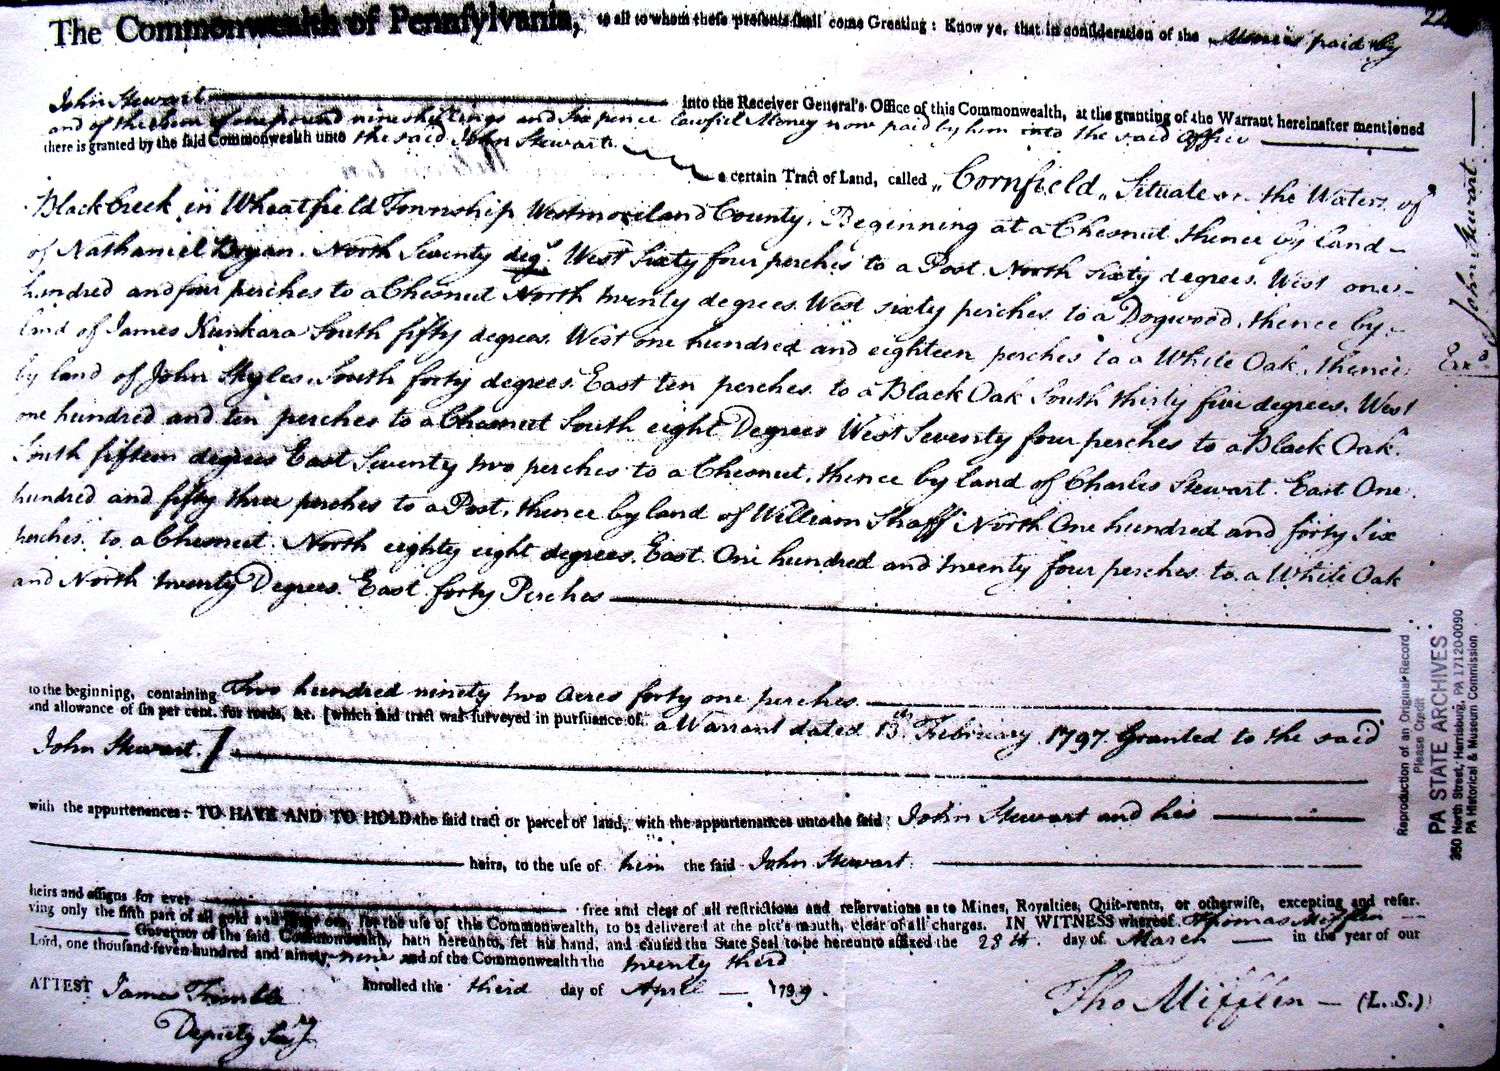 The Commonwealth of Pennſylvania, to all to whom theſe preſents ſhall come Greeting: Know ye, that in conſideration of the Monies paid by
John Stewart into the Receiver General's Office of this Commonwealth, at the granting of the Warrant hereinafter mentioned
and of the Sum of one pound nine shillings and six pence Lawful Money now paid by him into the said Office
there is granted by the ſaid Commonwealth unto the said John Stewart
a certain Tract of Land, called „Cornfield„ Situate on the Waters of
Black Creek in Wheatfield Township Westmoreland County, Beginning at a Chesnut thence by land
of Nathaniel Bryan. North Seventy deg.s West Sixty four perches to a Post North sixty degrees West one
hundred and four perches to a Chesnut North twenty degrees West sixty perches to a Dogwood, thence by
land of James Kunkara South fifty degrees West one hundred and eighteen perches to a White Oak, thence
by land of John Skyles South forty degrees East ten perches to a Black Oak South thirty five degrees West
one hundred and ten perches to a Chesnut South eight Degrees West Seventy four perches to a Black Oak
South fifteen degrees East Seventy two perches to a Chesnut, thence by land of Charles Stewart East One
hundred and fifty three perches to a Post, thence by land of William Shaff North One hundred and forty six
perches to a Chesnut North eighty eight degrees East One hundred and twenty four perches to a White Oak
and North twenty Degrees East forty Perches
to the beginning, containing Two hundred ninety two acres forty one perches
and allowance of ſix per cent. for roads, &c. [which ſaid tract was ſurveyed in purſuance of a Warrant dated 13th February 1797 Granted to the said
John Stewart.]
with the appurtenances: TO HAVE AND TO HOLD the ſaid tract or parcel of land, with the appurtenances unto the ſaid John Stewart and his
heirs, to the uſe of him the ſaid John Stewart
heirs and aſſigns for ever free and clear of all reſtrictions and reſervations as to Mines, Royalties, Quit-rents, or otherwiſe, excepting and reſer-
ving only the fifth part of all gold and ſilver ore, for the uſe of this Commonwealth, to be delivered at the pitt's mouth, clear of all charges. IN WITNESS whereof Thomas Mifflin
Governor of the ſaid Commonwealth, hath hereunto ſet his hand, and cauſed the State Seal to be hereunto affixed the 28th day of March in the year of our
Lord, one thouſand ſeven hundred and ninety-nine and of the Commonwealth the twenty third
ATTEST James Trimble Enrolled the third day of April 1799.
Deputy Secy
Tho Mifflin (L. S.)
John Stewart
Exd
Reproduction of an Original Record
Please Credit
PA STATE ARCHIVES
350 North Street, Harrisburg, PA 17120-0090
PA Historical & Museum Commission